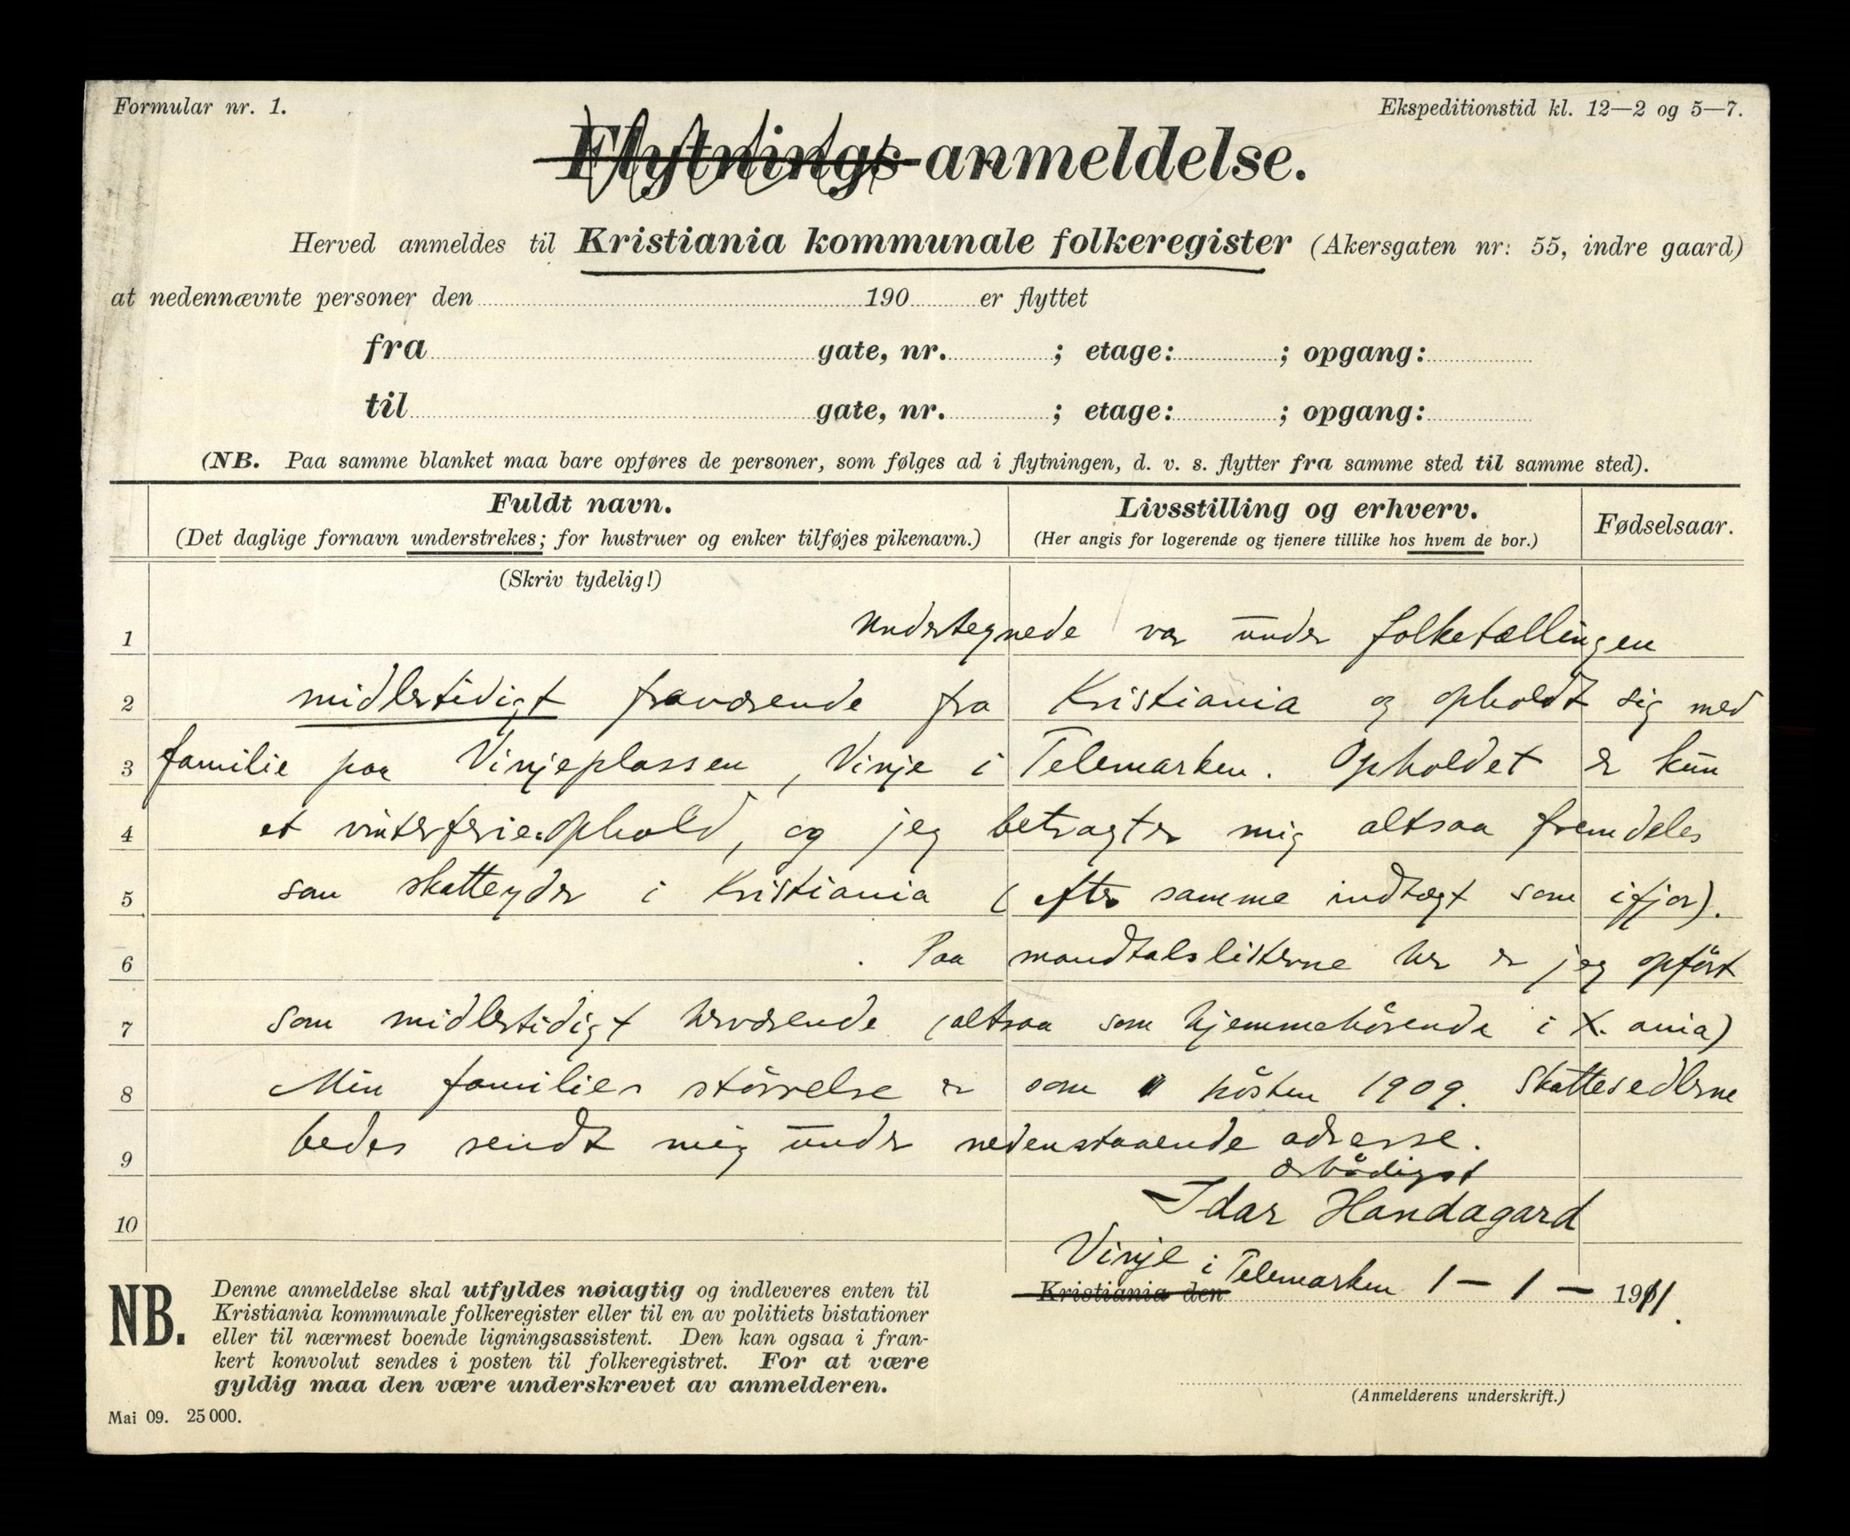 Formular nr. 1.
Ekspeditionstid kl. 12—2 og 5—7.
Flytnings-anmeldelse.
Herved anmeldes til Kristiania kommunale folkeregister (Akersgaten nr: 55, indre gaard)
at nedennævnte personer den 190 er flyttet
fra gate, nr. ; etage: ; opgang:
til gate, nr. ; etage: ; opgang:
(NB. Paa samme blanket maa bare opføres de personer, som følges ad i flytningen, d. v. s. flytter fra samme sted til samme sted).
Fuldt navn.
(Det daglige fornavn understrekes; for hustruer og enker tilføjes pikenavn.)
Livsstilling og erhverv.
(Her angis for logerende og tjenere tillike hos hvem de bor.)
Fødselsaar.
(Skriv tydelig!)
1 Undertegnede var under folketællingen
2 midlertidigt fraværende fra Kristiania og opholdt sig med
3 familie paa Vinjeplassen, Vinje i Telemarken. Opholdet er kun
4 et vinterferieophold, og jeg betragter mig altsaa fremdeles
5 som skatteyder i Kristiania (efter samme indtægt som ifjor).
6 Paa mandtalslisterne her er jeg opført
7 som midlertidigt herværende (altsaa som hjemmehörende i X.ania)
8 Min families störrelse er som hösten 1909. Skattesedlerne
9 bedes sendt mig under nedenstaaende adresse.
ærbødigst
10 Idar Handagard
Vinje i Telemarken 1 – 1 – 1911.
Kristiania den
NB. Denne anmeldelse skal utfyldes nøiagtig og indleveres enten til
Kristiania kommunale folkeregister eller til en av politiets bistationer
eller til nærmest boende ligningsassistent. Den kan ogsaa i fran-
kert konvolut sendes i posten til folkeregistret. For at være
gyldig maa den være underskrevet av anmelderen.
(Anmelderens underskrift.)
Mai 09. 25 000.